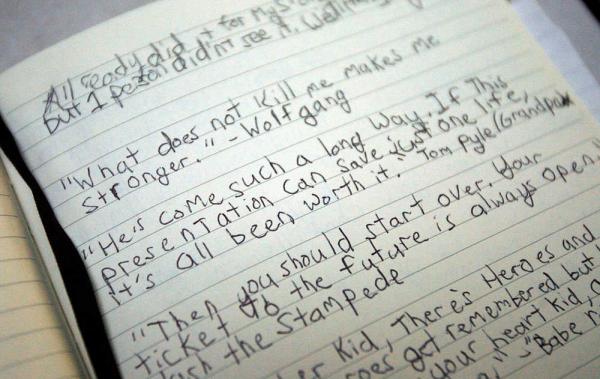 All ready did it for
but 1 person didn't see it.
"What does not kill me makes me
stronger." - Wolfgang
"He's come such a long way. If This
presenTaTion can save just one life,
it's all been worth it." Tom Pyle (Grandpa
"Then you should start over. Your
ticket to the future is always open."
the Stampede
Kid, There's Heroes and
get remembered but
your heart kid,
- "Babe